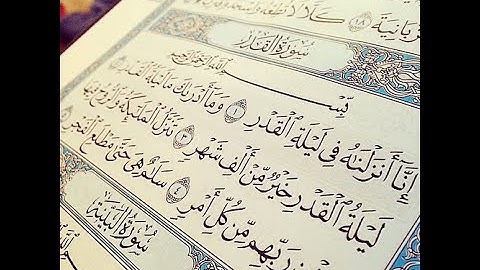 زبانية ١٨ كَلَّا لَا تُطِعْهُ
سُورَةُ القَدْرِ
بِسْمِ ٱللَّهِ ٱلرَّحْمَٰنِ ٱلرَّحِيمِ
إِنَّآ أَنزَلْنَٰهُ فِى لَيْلَةِ ٱلْقَدْرِ ١ وَمَآ أَدْرَىٰكَ مَا لَيْلَةُ ٱلْقَدْرِ ٢
لَيْلَةُ ٱلْقَدْرِ خَيْرٌ مِّنْ أَلْفِ شَهْرٍ ٣ تَنَزَّلُ ٱلْمَلَٰٓئِكَةُ وَٱلرُّوحُ فِيهَا
رَبِّهِم مِّن كُلِّ أَمْرٍ ٤ سَلَٰمٌ هِىَ حَتَّىٰ مَطْلَعِ ٱلْفَجْرِ
سُورَةُ البَيِّنَةِ